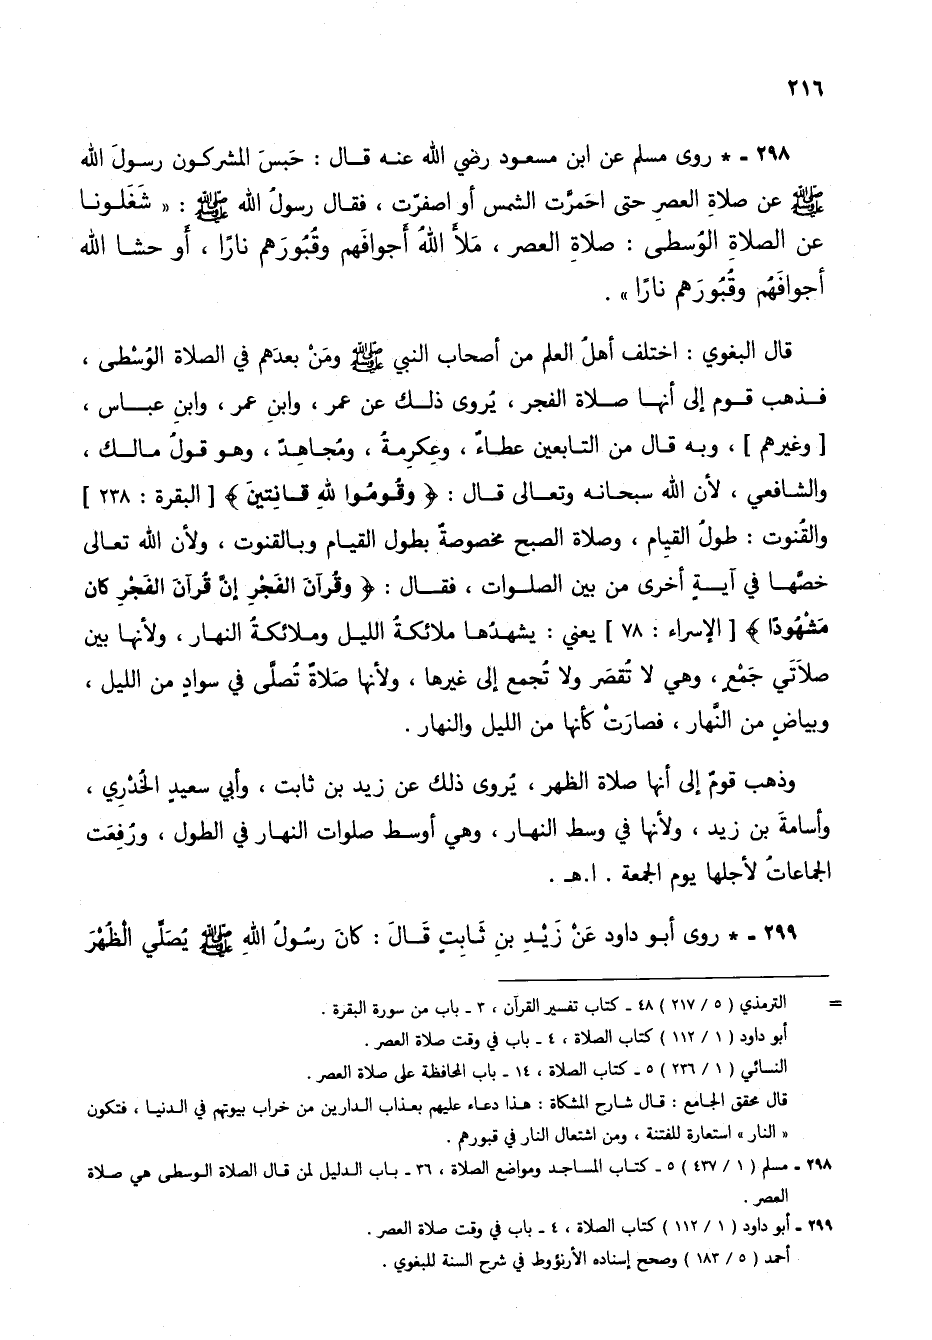 ٢١٦
٢٩٨ ـ * روى مسلم عن ابن مسعود رضي الله عنه قـال : حَبسَ المشركون رسولَ الله
ﷺ عن صلاةِ العصرِ حتى احمَرَّت الشمس أو اصفرّت ، فقـال رسولُ الله ﷺ : « شَغَلونـا
عن الصلاةِ الوُسطى : صلاةِ العصر ، مَلأَ اللهُ أجوافَهم وقُبُورَهم نارًا ، أَو حشـا الله
أجوافَهُم وقُبُورَهم نارًا » .
قال البغوي : اختلف أهلُ العلم من أصحاب النبي ﷺ ومَنْ بعدَهم في الصلاة الوُسْطى ،
فـذهب قـوم إلى أنهـا صـلاة الفجر ، يُروى ذلـك عن عمر ، وابنِ عمر ، وابنِ عبـاس ،
[ وغيرهم ] ، وبـه قـال من التـابعين عطـاءٌ ، وعِكرِمـةُ ، ومُجـاهِـدٌ ، وهـو قـولُ مـالـك ،
والشافعي ، لأن الله سبحـانـه وتعـالى قـال : ﴿ وقُـومُوا للهِ قـانِتينَ ﴾ [ البقرة : ٢٣٨ ]
والقُنوت : طولُ القيام ، وصلاة الصبح مخصوصةٌ بطول القيـام وبـالقنوت ، ولأن الله تعـالى
خصَّهـا في آيـةٍ أخرى من بين الصلـوات ، فقـال : ﴿ وقُرآنَ الفَجْرِ إنَّ قُرآنَ الفَجْرِ كان
مَشْهُودًا ﴾ [ الإسراء : ٧٨ ] يعني : يشهدُهـا ملائكـةُ الليـل وملائكـةُ النهـار ، ولأنهـا بين
صلاتَي جَمْعٍ ، وهي لا تُقصَر ولا تُجمع إلى غيرها ، ولأنها صَلاةٌ تُصلَّى في سوادٍ من الليل ،
وبياضٍ من النَّهار ، فصارَتْ كأنها من الليل والنهار .
وذهب قومٌ إلى أنها صلاة الظهر ، يُروى ذلك عن زيد بن ثابت ، وأبي سعيدٍ الخُدْري ،
وأسامةَ بن زيد ، ولأنها في وسط النهار ، وهي أوسط صلوات النهـار في الطول ، ورُفِعَت
الجماعاتُ لأجلها يوم الجمعة . ا.هـ .
٢٩٩ ـ * روى أبـو داود عَنْ زَيْـدِ بنِ ثَـابتٍ قَـالَ : كانَ رسُولُ اللهِ ﷺ يُصَلِّي الْظُهْرَ
= الترمذي ( ٥ / ٢١٧ ) ٤٨ ـ كتاب تفسير القرآن ، ٣ ـ باب من سورة البقرة .
أبو داود ( ١ / ١١٢ ) كتاب الصلاة ، ٤ ـ باب في وقت صلاة العصر .
النسائي ( ١ / ٢٣٦ ) ٥ ـ كتاب الصلاة ، ١٤ ـ باب المحافظة على صلاة العصر .
قال محقق الجامع : قال شارح المشكاة : هـذا دعـاء عليهم بعـذاب الـدارين من خراب بيوتهم في الـدنيـا ، فتكون
« النار » استعارة للفتنة ، ومن اشتعال النار في قبورهم .
٢٩٨ ـ مسلم ( ١ / ٤٣٧ ) ٥ ـ كتـاب المسـاجد ومواضع الصلاة ، ٣٦ ـ بـاب الدليل لمن قـال الصلاة الـوسطى هي صـلاة
العصر .
٢٩٩ ـ أبو داود ( ١ / ١١٢ ) كتاب الصلاة ، ٤ ـ باب في وقت صلاة العصر .
أحمد ( ٥ / ١٨٣ ) وصحح إسناده الأرنؤوط في شرح السنة للبغوي .